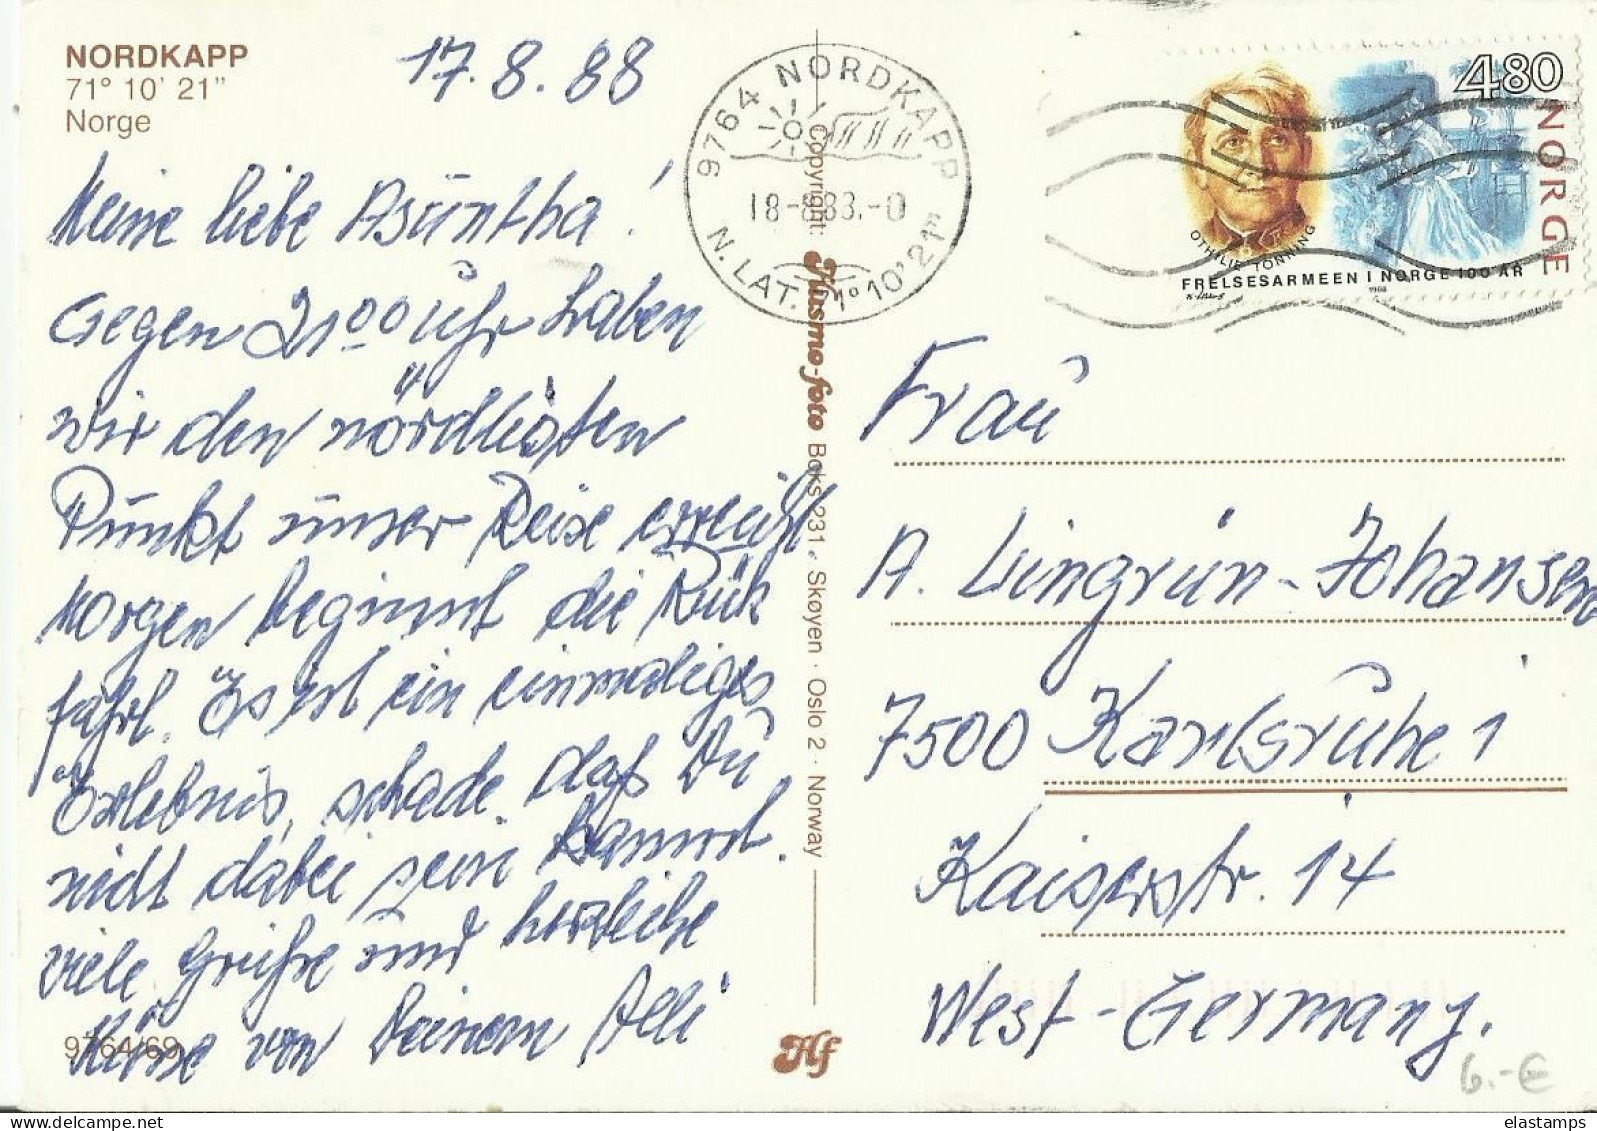 NORDKAPP
71° 10' 21"
Norge
17.8.88
Meine liebe Asuntha!
Gegen 21⁰⁰ Uhr haben
wir den nördlichsten
Punkt unser Reise erreicht
Morgen beginnt die Rück
fahrt. Es ist ein einmaliges
Erlebnis, schade, daß Du
nicht dabei sein kannst.
Viele Grüße und herzliche
Küsse von Deinem Alli
9764/69
9764 NORDKAPP
18-8.88.-0
N. LAT. 71° 10' 21"
Copyright: Husmo-foto Boks 231 · Skøyen · Oslo 2 · Norway
Hf
480
NORGE
OTHILIE TONNING
FRELSESARMEEN I NORGE 100 ÅR
1988
Frau
A. Lüngrün-Johansen
7500 Karlsruhe 1
Kaiserstr. 14
West-Germany.
6.-€
elastamps